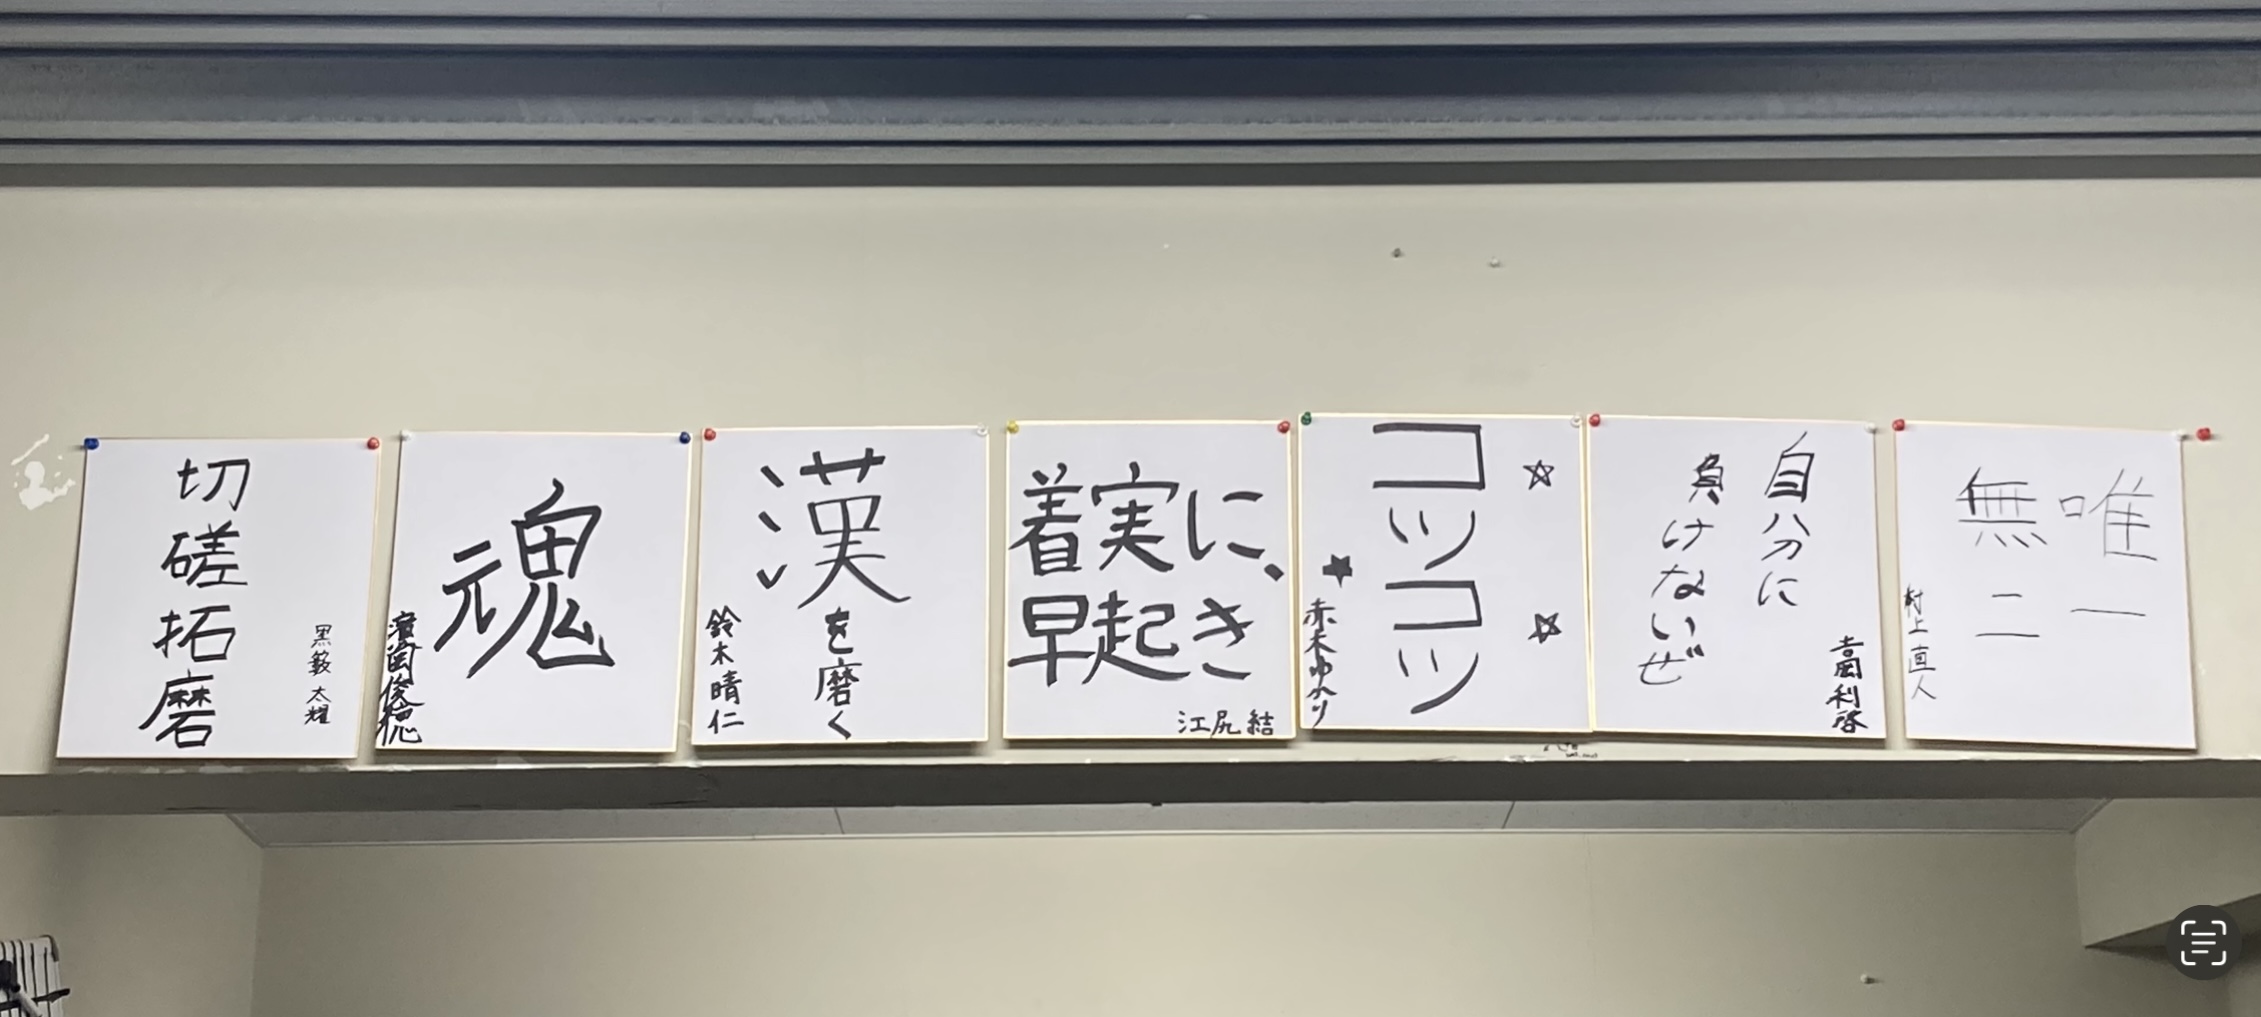 切磋拓磨
太耀
魂
漢を磨く
鈴木晴仁
着実に、
早起き
江尻結
コツコツ
赤木ゆかり
自分に
負けないぜ
吉岡利啓
唯一
無二
村上直人